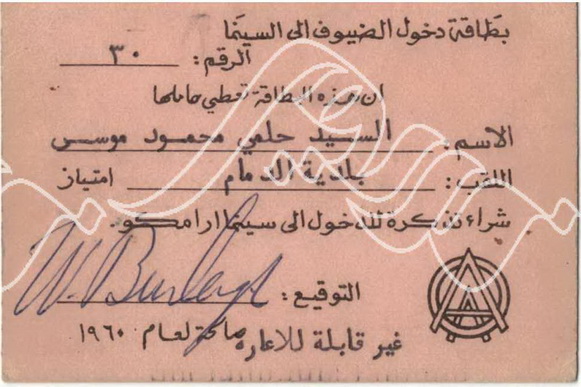 بطاقة دخول الضيوف الى السينما
الرقم: ٣٠
ان هذه البطاقة تعطي حاملها
الاسم: السيد حلمي محمود موسى
اللقب: بلدية الدمام امتياز
شراء تذكرة للدخول الى سينما ارامكو.
التوقيع: W. Burleigh
غير قابلة للاعارة صالحة لعام ١٩٦٠